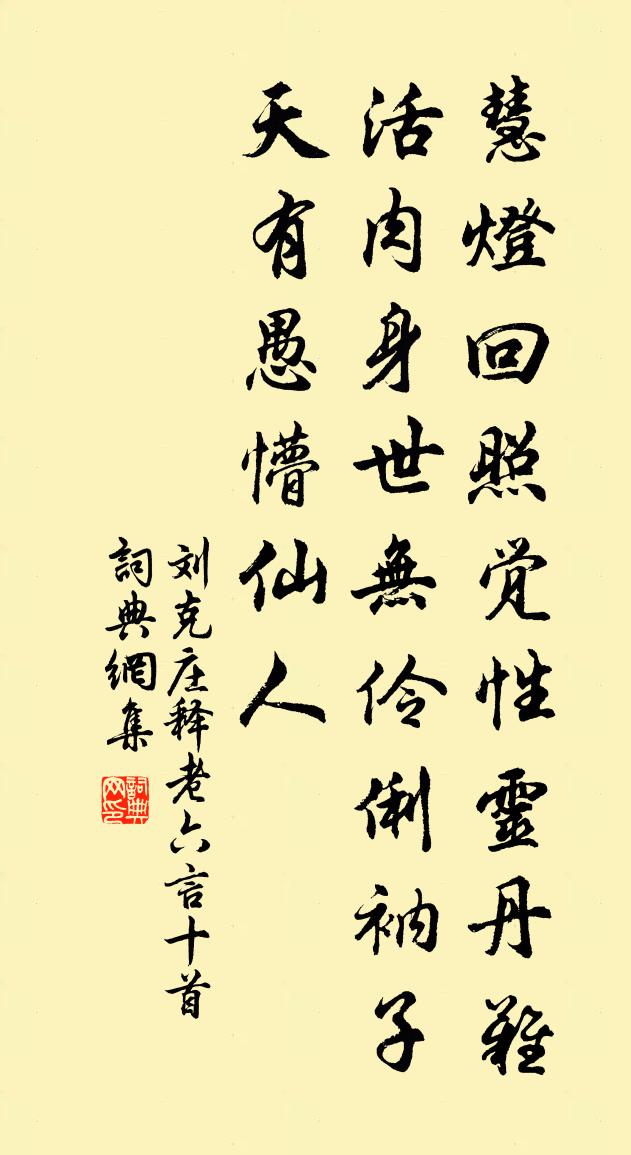 慧燈回照觉性靈丹難
活肉身世無伶俐衲子
天有愚懵仙人
刘克庄释老六言十首
詞典網集
詞典网印